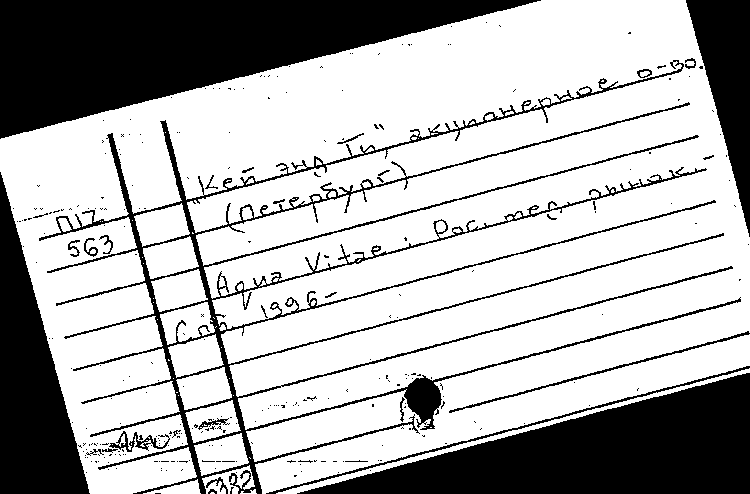 "Кей энд Ти", акционерное о-во.
(Петербург)
П17
563
Aqua Vitae : Рос. мед. рынок. –
Спб, 1996 –